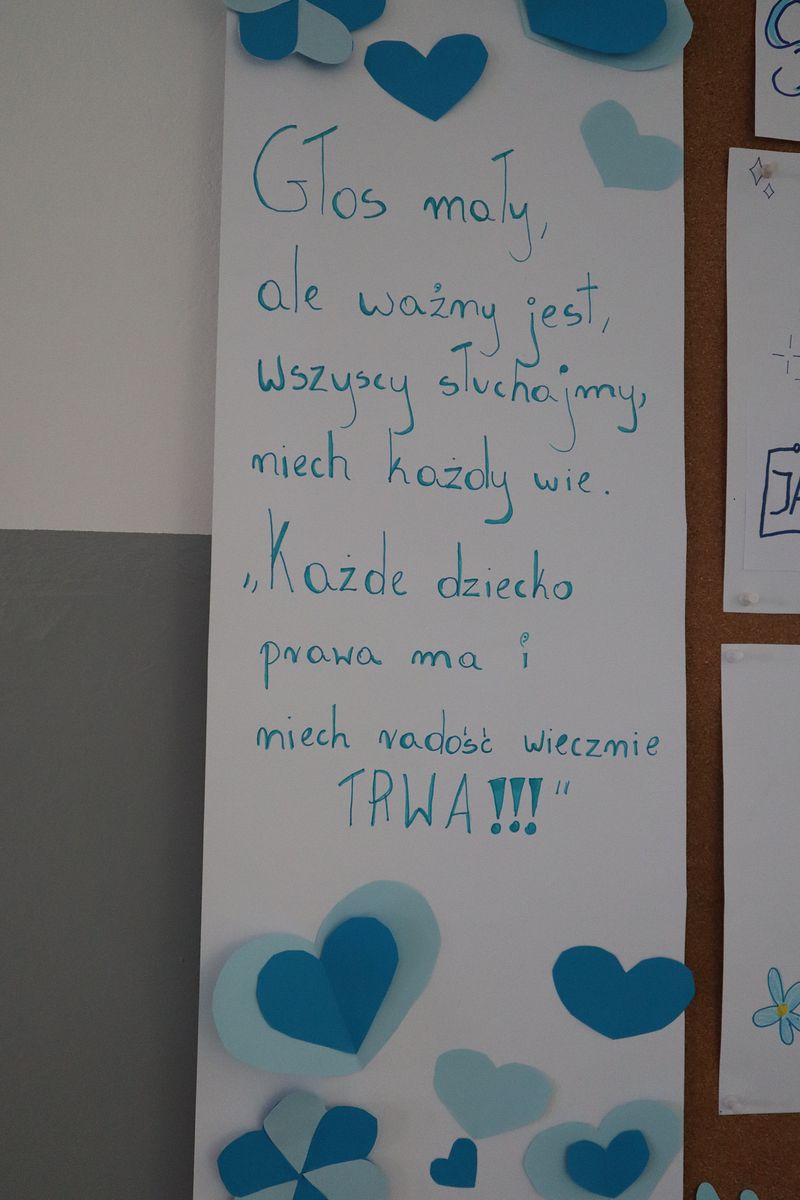 Głos mały,
ale ważny jest,
wszyscy słuchajmy,
niech każdy wie.
„Każde dziecko
prawa ma i
niech radość wiecznie
TRWA!!!"